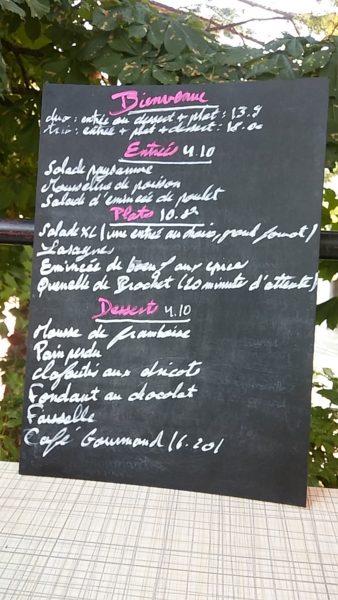 Bienvenue
duo : entrée ou dessert + plat : 13.9
trio : entrée + plat + dessert : 18.00
Entrées 4.10
Salade paysanne
Mousseline de poisson
Salade d'émincé de poulet
Plats 10.
Salade XL (une entrée au choix, grand format)
Lasagnes
Emincée de boeuf aux cèpes
Quenelle de Brochet (20 minute d'attente)
Desserts 4.10
Mousse de framboise
Pain perdu
clafoutis aux abricots
Fondant au chocolat
Faisselle
Café Gourmand (6.20)